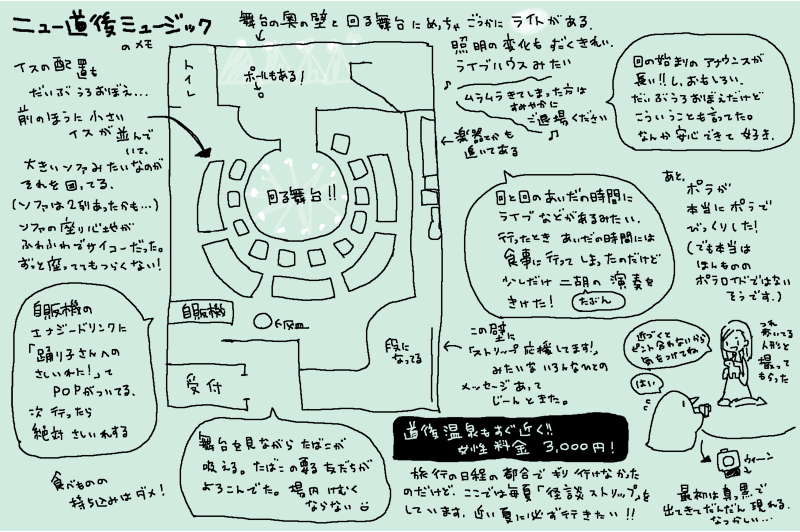 ニュー道後ミュージック
のメモ
イスの配置も
だいぶうろおぼえ…
前のほうに小さい
イスが並んで
いて、
大きいソファみたいなのが
それを囲ってる。
(ソファは2列あったかも…)
ソファの座り心地が
ふわふわでサイコーだった。
ずっと座っててもつらくない!
自販機の
エナジードリンクに
「踊り子さんへの
さしいれに!」って
POPがついてる。
次行ったら
絶対さしいれする
食べものの
持ち込みはダメ!
舞台の奥の壁と回る舞台にめっちゃごうかにライトがある。
トイレ
ポールもある!
回る舞台!!
自販機
灰皿
受付
段に
なってる
照明の変化もすごくきれい。
ライブハウスみたい
♪
ムラムラきてしまった方は
すみやかに
ご退場ください
♫
楽器とかも
置いてある
回の始まりのアナウンスが
長い!!し、おもしろい。
だいぶうろおぼえだけど
こういうことも言ってた。
なんか安心できて好き。
回と回のあいだの時間に
ライブなどがあるみたい。
行ったときあいだの時間には
食事に行ってしまったのだけど
少しだけ二胡の演奏を
きけた!
たぶん
あと、
ポラが
本当にポラで
びっくりした!
(でも本当は
ほんものの
ポラロイドではない
そうです。)
この壁に
「ストリップ応援してます!」
みたいないろんなひとの
メッセージあって
じーんときた。
近づくと
ピント合わないから
気をつけてね
はい
つれ
歩いてる
人形と
撮って
もらった
ウィーン
最初は真っ黒で
出てきてだんだん現れる。
なつかしい…
舞台を見ながらたばこが
吸える。たばこの吸う友だちが
よろこんでた。場内けむく
ならない
道後温泉もすぐ近く!!
女性料金 3,000円!
旅行の日程の都合でギリ行けなかった
のだけど、ここでは毎夏「怪談ストリップ」を
しています。近い夏に必ず行きたい!!